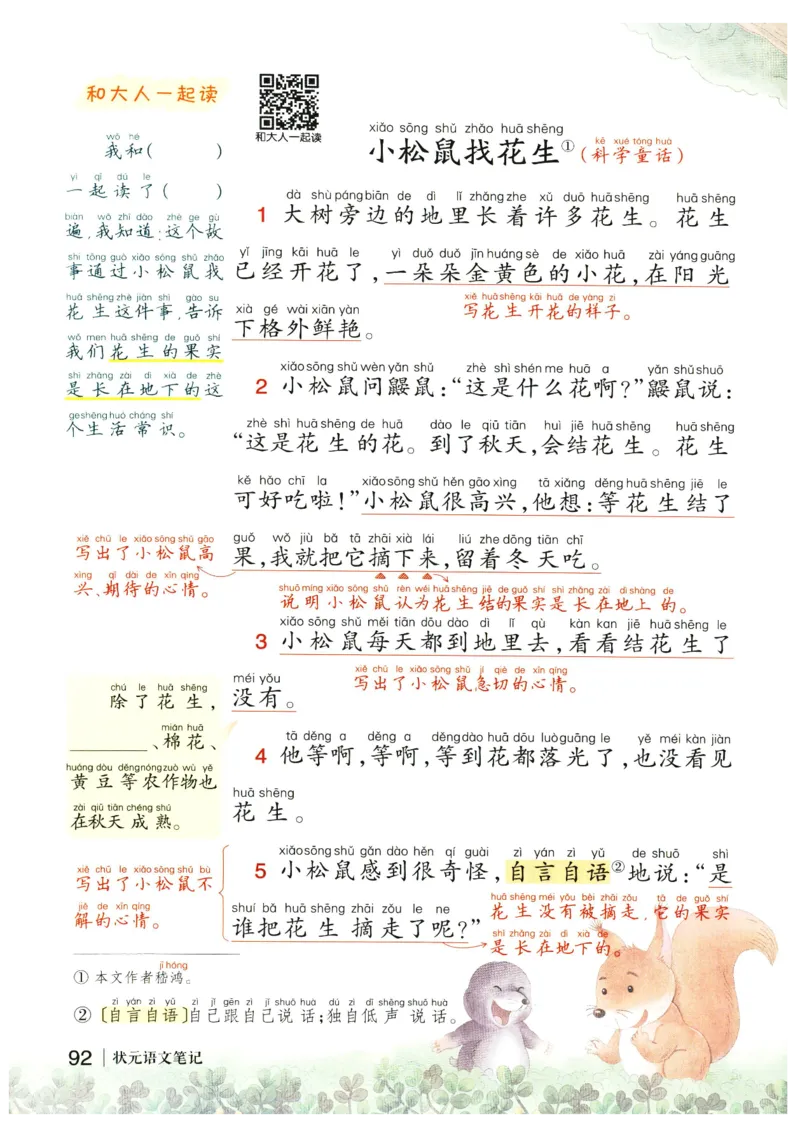 和大人一起读
和大人一起读
wǒ hé
我和(      )
yì qǐ dú le
一起读了(      )
biàn wǒ zhī dào zhè ge gù
遍,我知道:这个故
shi tōng guò xiǎo sōng shǔ zhǎo
事通过小松鼠找
huā shēng zhè jiàn shì gào su
花生这件事,告诉
wǒ men huā shēng de guǒ shí
我们花生的果实
shì zhǎng zài dì xià de zhè
是长在地下的这
ge shēng huó cháng shí
个生活常识。
xiǎo sōng shǔ zhǎo huā shēng
小松鼠找花生①
kē xué tóng huà
(科学童话)
dà shù páng biān de dì lǐ zhǎng zhe xǔ duō huā shēng huā shēng
1 大树旁边的地里长着许多花生。花生
yǐ jīng kāi huā le yì duǒ duǒ jīn huáng sè de xiǎo huā zài yáng guāng
已经开花了,一朵朵金黄色的小花,在阳光
xià gé wài xiān yàn
下格外鲜艳。
xiě huā shēng kāi huā de yàng zi
写花生开花的样子。
xiǎo sōng shǔ wèn yǎn shǔ zhè shì shén me huā a yǎn shǔ shuō
2 小松鼠问鼹鼠:“这是什么花啊?”鼹鼠说:
zhè shì huā shēng de huā dào le qiū tiān huì jiē huā shēng huā shēng
“这是花生的花。到了秋天,会结花生。花生
kě hǎo chī la xiǎo sōng shǔ hěn gāo xìng tā xiǎng děng huā shēng jiē le
可好吃啦!”小松鼠很高兴,他想:等花生结了
guǒ wǒ jiù bǎ tā zhāi xià lái liú zhe dōng tiān chī
果,我就把它摘下来,留着冬天吃。
xiě chū le xiǎo sōng shǔ gāo
写出了小松鼠高
xìng qī dài de xīn qíng
兴、期待的心情。
shuō míng xiǎo sōng shǔ rèn wéi huā shēng jiē de guǒ shí shì zhǎng zài dì shàng de
说明小松鼠认为花生结的果实是长在地上的。
xiǎo sōng shǔ měi tiān dōu dào dì lǐ qù kàn kan jiē huā shēng le
3 小松鼠每天都到地里去,看看结花生了
méi yǒu
没有。
xiě chū le xiǎo sōng shǔ jí qiè de xīn qíng
写出了小松鼠急切的心情。
chú le huā shēng
除了花生,
mián huā
________、棉花、
huáng dòu děng nóng zuò wù yě
黄豆等农作物也
zài qiū tiān chéng shú
在秋天成熟。
tā děng a děng a děng dào huā dōu luò guāng le yě méi kàn jiàn
4 他等啊,等啊,等到花都落光了,也没看见
huā shēng
花生。
xiǎo sōng shǔ gǎn dào hěn qí guài zì yán zì yǔ de shuō shì
5 小松鼠感到很奇怪,自言自语②地说:“是
shuí bǎ huā shēng zhāi zǒu le ne
谁把花生摘走了呢?”
xiě chū le xiǎo sōng shǔ bù
写出了小松鼠不
jiě de xīn qíng
解的心情。
huā shēng méi yǒu bèi zhāi zǒu tā de guǒ shí
花生没有被摘走,它的果实
shì zhǎng zài dì xià de
是长在地下的。
jī hóng
① 本文作者嵇鸿。
zì yán zì yǔ zì jǐ gēn zì jǐ shuō huà dú zì dī shēng shuō huà
② 〔自言自语〕自己跟自己说话;独自低声说话。
92 | 状元语文笔记